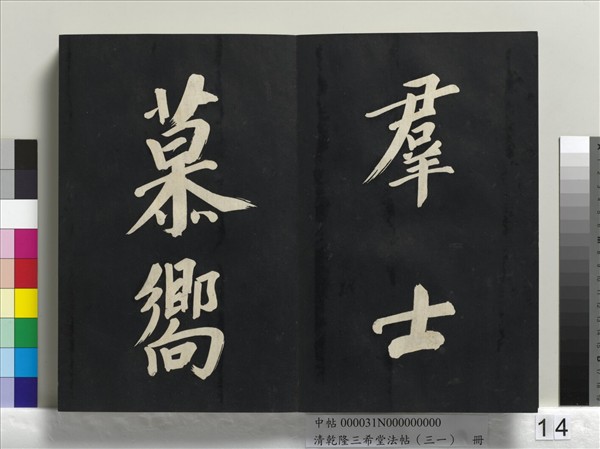 羣士
慕嚮
中帖 000031N000000000
清乾隆三希堂法帖（三一） 冊
14